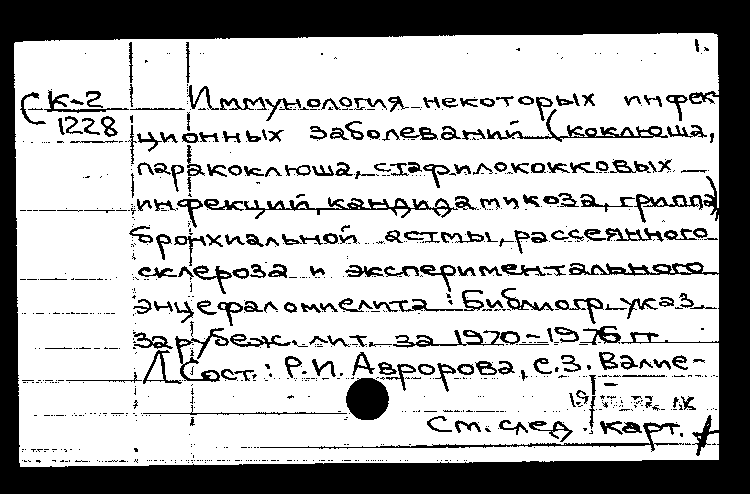 1.
К-2
1228
Иммунология некоторых инфек-
ционных заболеваний (коклюша,
паракоклюша, стафилококковых
инфекций, кандидамикоза, гриппа)
бронхиальной астмы, рассеянного
склероза и экспериментального
энцефаломиелита : Библиогр. указ.
зарубеж. лит. за 1970-1976 гг.
Сост.: Р.И. Авророва, С.З. Валие-
См. след. карт.